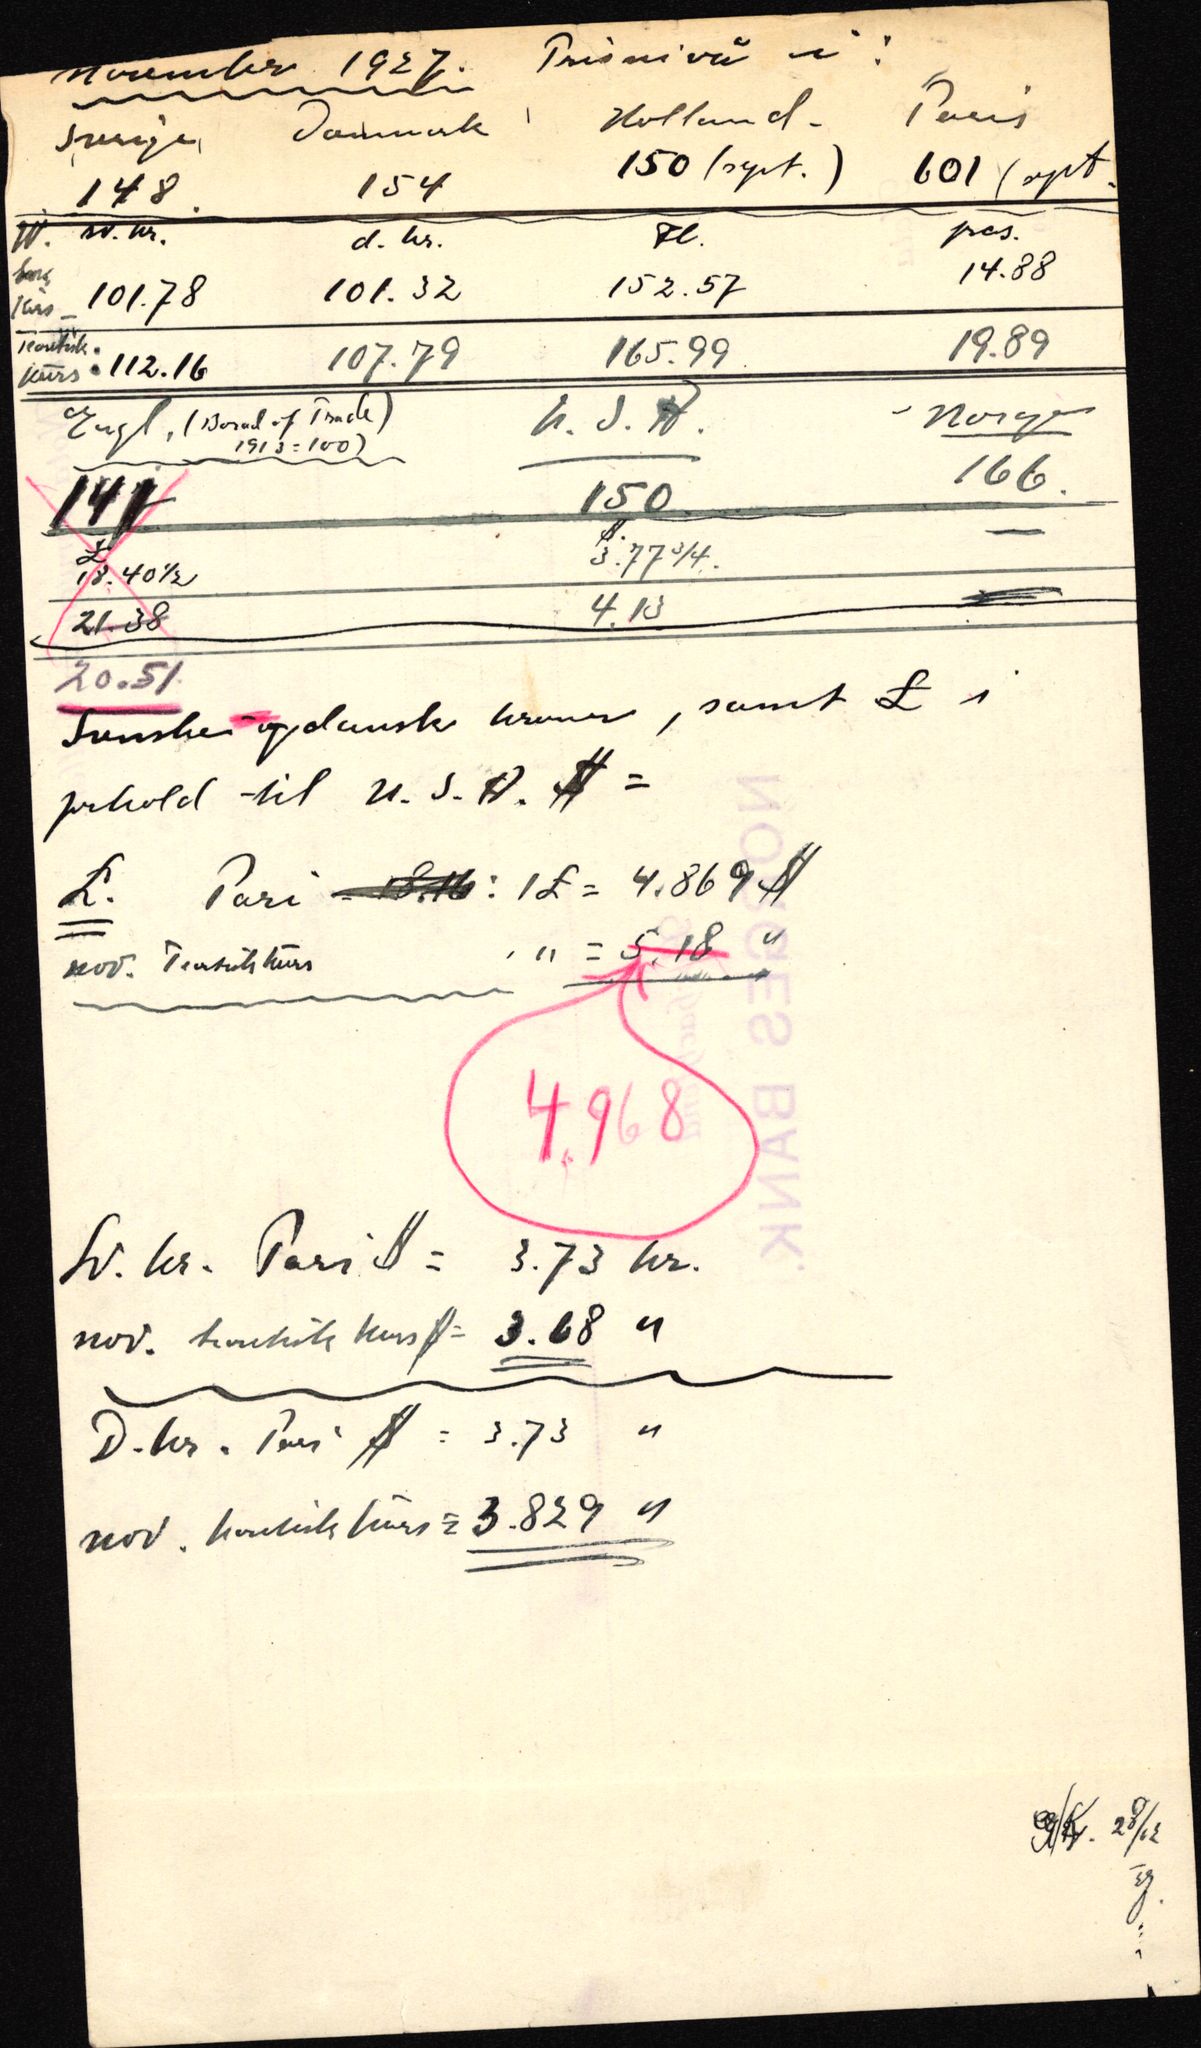 November 1927. Prisnivå i:
Sverige Danmark Holland. Paris
148. 154 150 (sept.) 601 (sept.
sv. kr. d. kr. Fl. frcs.
kurs 101.78 101.32 152.57 14.88
Teoretisk kurs: 112.16 107.79 165.99 19.89
Engl. (Board of Trade) U. S. A. Norge
1913=100)
141 150 166.
£ $. —
18.40½ 3.77 3/4.
21.38 4.13
20.51.
Svenske og danske kroner, samt £ i
forhold til U. S. A. $ =
£. Pari = 18.16: 1£ = 4.869 $
nov. Teoretisk kurs " = 5.18 "
4.968
Sv. kr. Pari $ = 3.73 kr.
nov. teoretisk kurs $ = 3.68 "
D. kr. Pari $ = 3.73 "
nov. teoretisk kurs = 3.829 "
28/12
27.
NORGES BANK.